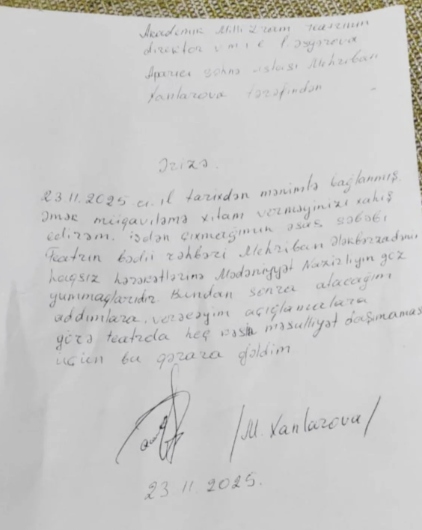 Akademik Milli Dram Teatrının
direktor
Aparıcı səhnə ustası Mehriban
Xanlarova tərəfindən
Ərizə.
23.11.2025 ci il tarixdən mənimlə bağlanmış
əmək müqaviləmə xitam verməyinizi xahiş
edirəm. İşdən çıxmağımın əsas səbəbi
Teatrın bədii rəhbəri Mehriban Ələkbərzadənin
haqsız hərəkətlərinə Mədəniyyət Nazirliyin göz
yummaqlarıdır. Bundan sonra atacağım
addımlara, verəcəyim açıqlamalara
görə teatrda heç məsuliyyət daşımaması
üçün bu qərara gəldim.
/M. Xanlarova/
23.11.2025.